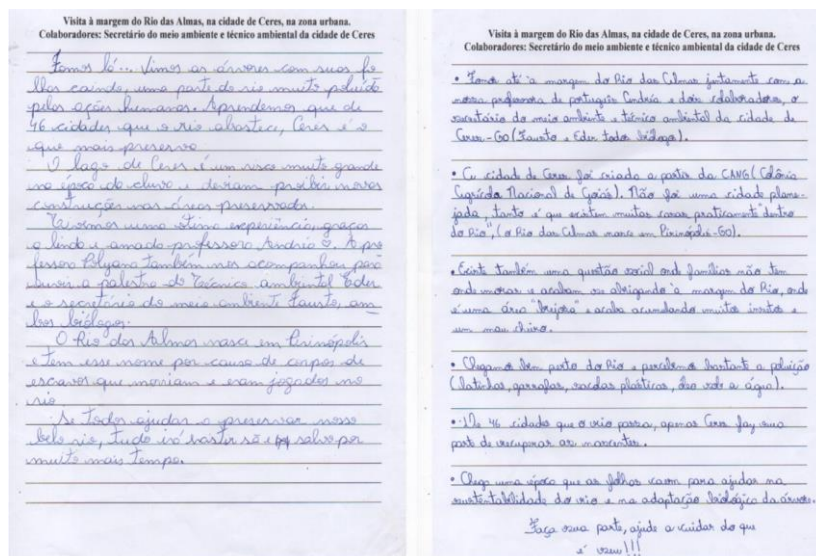 Visita à margem do Rio das Almas, na cidade de Ceres, na zona urbana.
Colaboradores: Secretário do meio ambiente e técnico ambiental da cidade de Ceres
Fomos lá... Vimos as árvores com suas fo
lhas caindo, uma parte do rio muito poluído
pelas ações humanas. Aprendemos que de
46 cidades que o rio abastece, Ceres é o
que mais preserva.
O lago de Ceres é um risco muito grande
na época da chuva e deviam proibir novas
construções nas áreas preservadas.
Tivemos uma ótima experiência, graças
a linda e amada professora Andréia. A pro
fessora Polyana também nos acompanhou para
ouvir a palestra do Técnico ambiental Eder
e o secretário do meio ambiente Fausto, am-
bos biólogos.
O Rio das Almas nasce em Pirinópolis
e tem esse nome por causa de corpos de
escravos que morriam e eram jogados no
rio.
Se todos ajudar a preservar nosso
belo rio, tudo irá salvo por
muito mais tempo.
Visita à margem do Rio das Almas, na cidade de Ceres, na zona urbana.
Colaboradores: Secretário do meio ambiente e técnico ambiental da cidade de Ceres
• Fomos até à margem do Rio das Almas juntamente com a
nossa professora de português e dois colaboradores, o
secretário do meio ambiente e técnico ambiental da cidade de
Ceres-GO (Fausto e Eder todos biólogos).
• A cidade de Ceres foi criada a partir da CANG (Colônia
Agrícola Nacional de Goiás). Não foi uma cidade plane-
jada, tanto é que existem muitas casas praticamente "dentro
do Rio", (o Rio das Almas nasce em Pirinópolis-GO).
• Existe também uma questão social onde famílias não tem
onde morar e acabam se abrigando à margem do Rio, onde
é uma área "brejosa" e acaba acumulando muitos insetos e
um mau cheiro.
• Chegamos bem perto do Rio e percebemos bastante a poluição
(latinhas, garrafas, sacolas plásticas, óleo sob a água).
• De 46 cidades que o rio passa, apenas Ceres faz sua
parte de recuperar as nascentes.
• Chega uma época que as folhas caem para ajudar na
sustentabilidade do rio e na adaptação biológica da árvore.
Faça sua parte, ajude a cuidar do que
é seu!!!